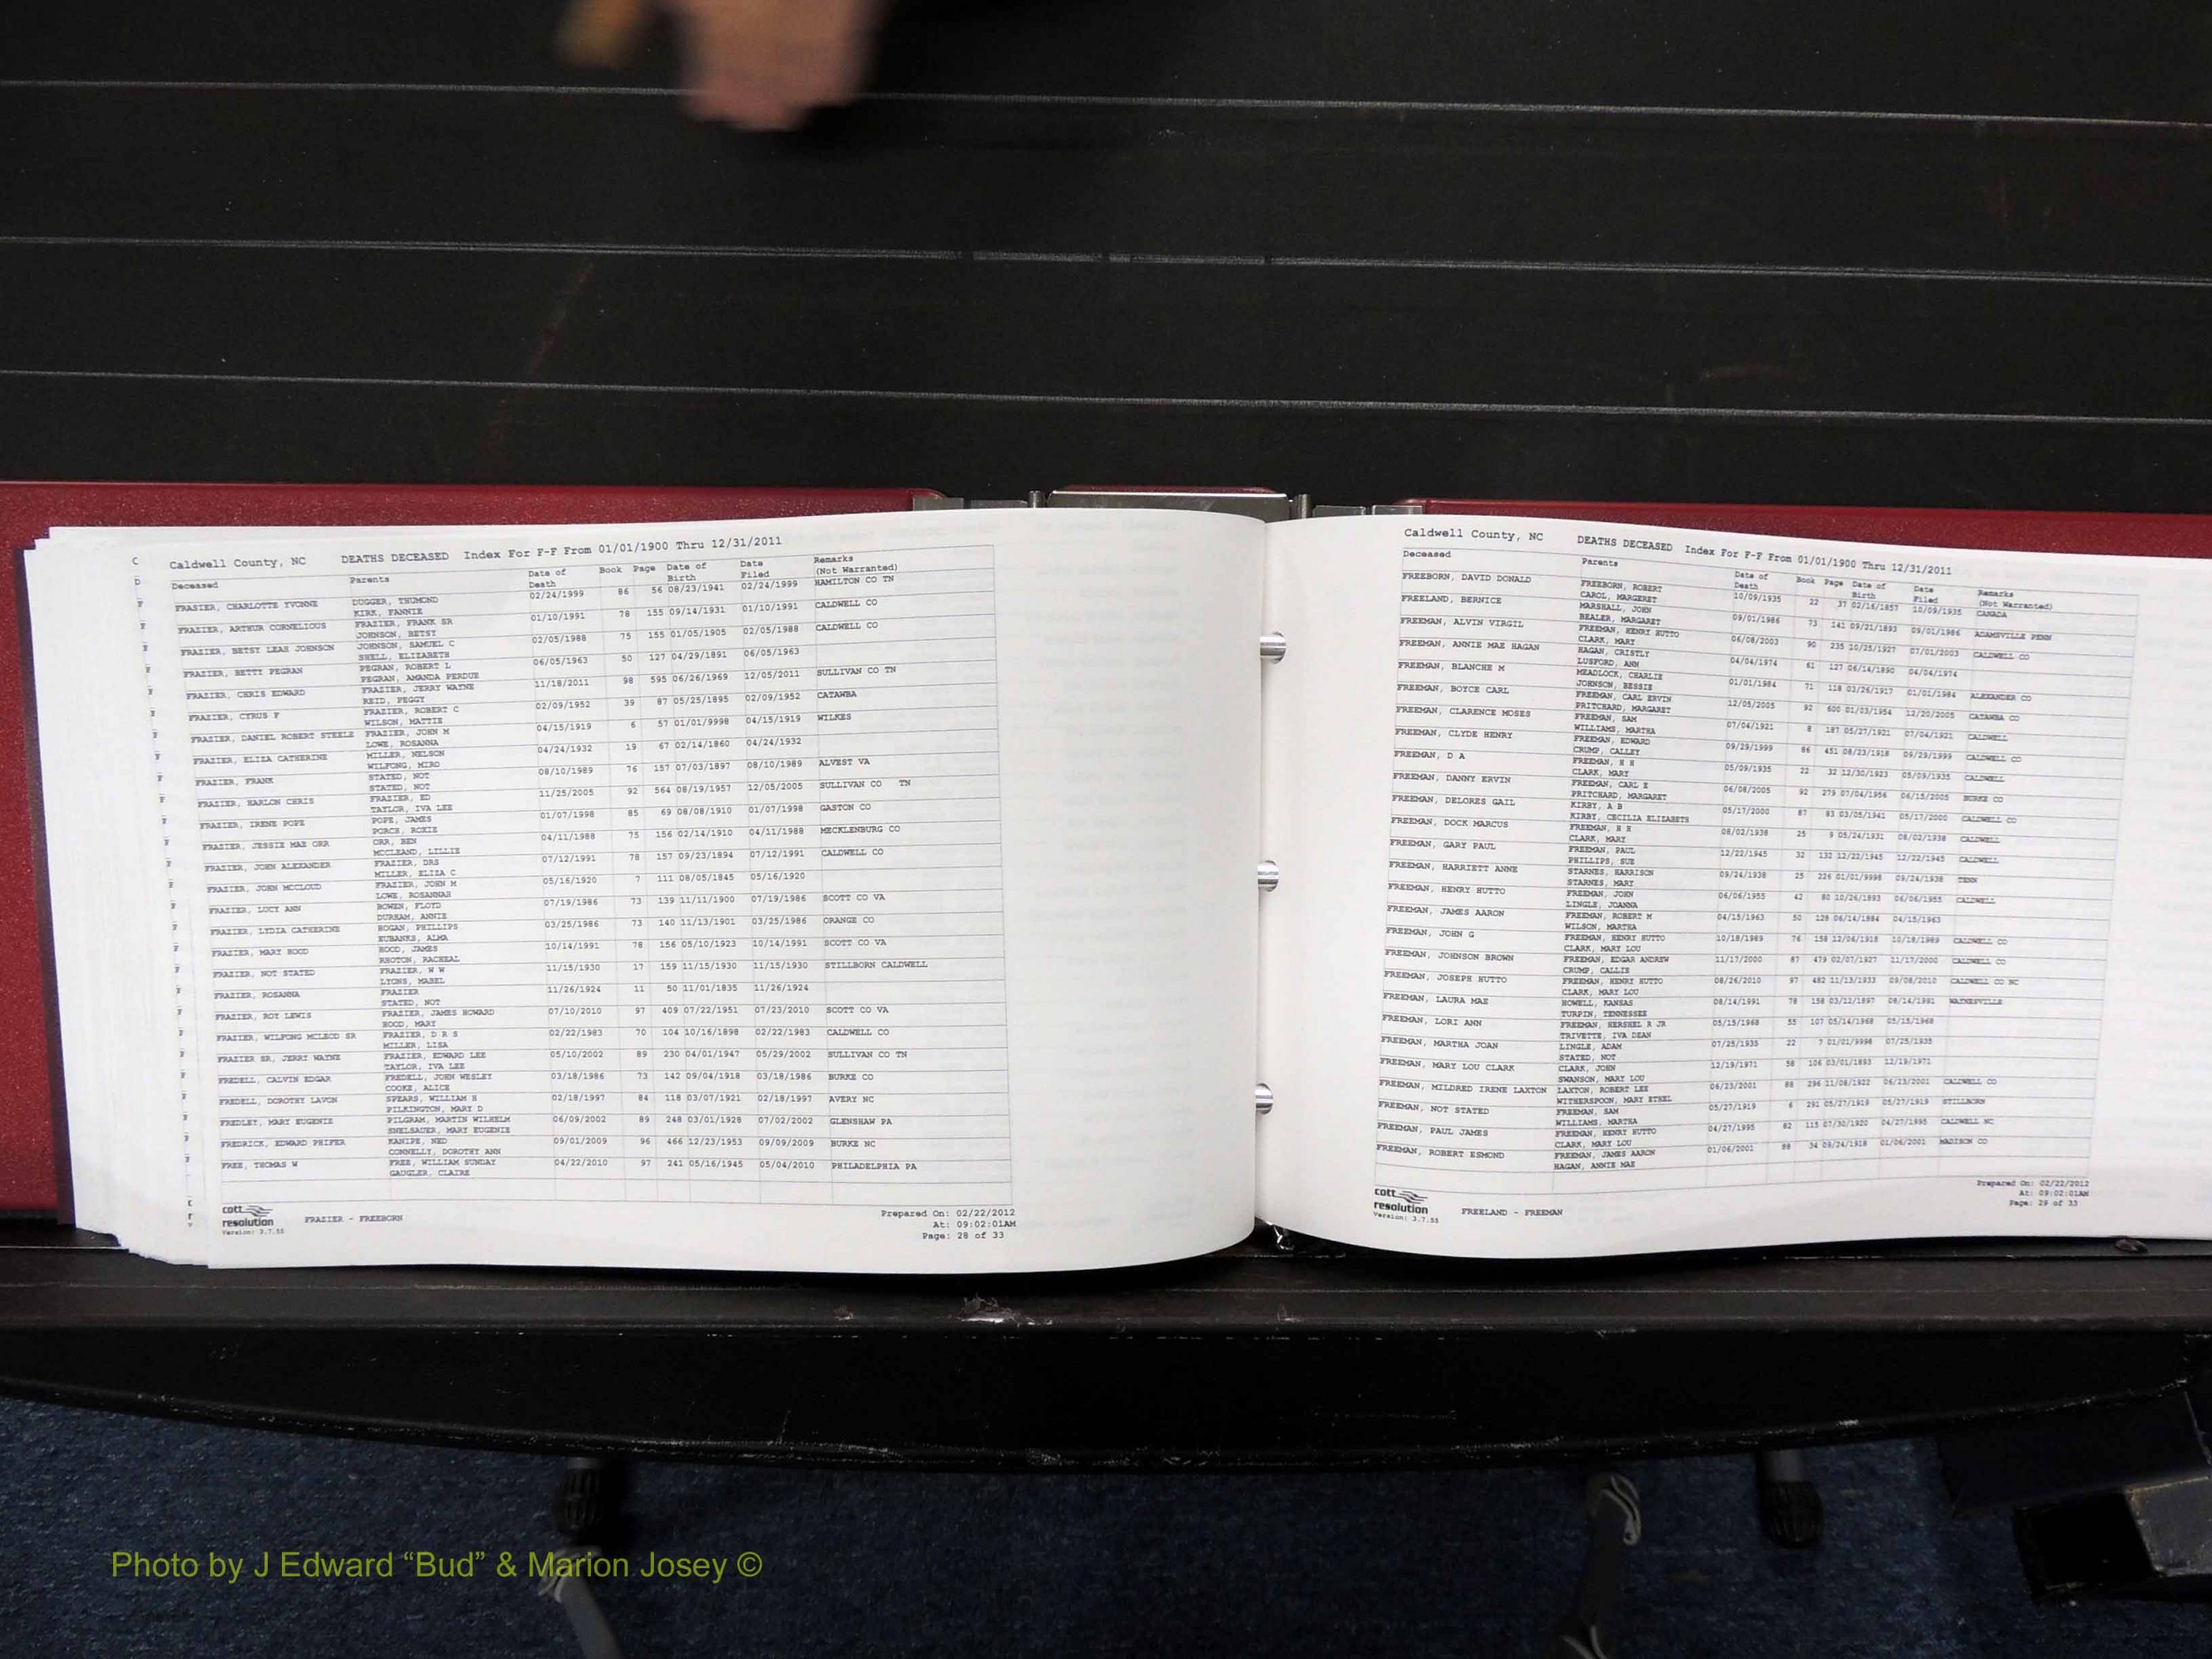 Caldwell County, NC DEATHS DECEASED Index For F-F From 01/01/1900 Thru 12/31/2011
Deceased Parents Date of Death Book Page Date of Birth Date Filed Remarks (Not Warranted)
FRASIER, CHARLOTTE YVONNE DUGGER, THUMOND 02/24/1999 86 56 08/23/1941 02/24/1999 HAMILTON CO TN
KIRK, FANNIE
FRAZIER, ARTHUR CORNELIOUS FRAZIER, FRANK SR 01/10/1991 78 155 09/14/1931 01/10/1991 CALDWELL CO
JOHNSON, BETSY
FRAZIER, BETSY LEAH JOHNSON JOHNSON, SAMUEL C 02/05/1988 75 155 01/05/1905 02/05/1988 CALDWELL CO
SHELL, ELIZABETH
FRAZIER, BETTY PEGRAN PEGRAN, ROBERT L 06/05/1963 50 127 04/29/1891 06/05/1963
PEGRAN, AMANDA PERDUE
FRAZIER, CHRIS EDWARD FRAZIER, JERRY WAYNE 11/18/2011 98 595 06/26/1969 12/05/2011 SULLIVAN CO TN
REID, PEGGY
FRAZIER, CYRUS F FRAZIER, ROBERT C 02/09/1952 39 87 05/25/1895 02/09/1952 CATAWBA
WILSON, MATTIE
FRAZIER, DANIEL ROBERT STEELE FRAZIER, JOHN M 04/15/1919 6 57 01/01/9998 04/15/1919 WILKES
LOWE, ROSANNA
FRAZIER, ELIZA CATHERINE MILLER, NELSON 04/24/1932 19 67 02/14/1860 04/24/1932
WILFONG, MIRO
FRAZIER, FRANK STATED, NOT 08/10/1989 76 157 07/03/1897 08/10/1989 ALVEST VA
STATED, NOT
FRAZIER, HARLON CHRIS FRAZIER, ED 11/25/2005 92 564 08/19/1957 12/05/2005 SULLIVAN CO TN
TAYLOR, IVA LEE
FRAZIER, IRENE POPE POPE, JAMES 01/07/1998 85 69 08/08/1910 01/07/1998 GASTON CO
PORCE, ROXIE
FRAZIER, JESSIE MAE ORR ORR, BEN 04/11/1988 75 156 02/14/1910 04/11/1988 MECKLENBURG CO
MCCLEAND, LILLIE
FRAZIER, JOHN ALEXANDER FRAZIER, DRS 07/12/1991 78 157 09/23/1894 07/12/1991 CALDWELL CO
MILLER, ELIZA C
FRAZIER, JOHN MCCLOUD FRAZIER, JOHN M 05/16/1920 7 111 08/05/1845 05/16/1920
LOWE, ROSANNAH
FRAZIER, LUCY ANN BOWEN, FLOYD 07/19/1986 73 139 11/11/1900 07/19/1986 SCOTT CO VA
DURHAM, ANNIE
FRAZIER, LYDIA CATHERINE HOGAN, PHILLIPS 03/25/1986 73 140 11/13/1901 03/25/1986 ORANGE CO
EUBANKS, ALMA
FRAZIER, MARY HOOD HOOD, JAMES 10/14/1991 78 156 05/10/1923 10/14/1991 SCOTT CO VA
RHOTON, RACHEAL
FRAZIER, NOT STATED FRAZIER, W W 11/15/1930 17 159 11/15/1930 11/15/1930 STILLBORN CALDWELL
LYONS, MABEL
FRAZIER, ROSANNA FRAZIER 11/26/1924 11 50 11/01/1835 11/26/1924
STATED, NOT
FRAZIER, ROY LEWIS FRAZIER, JAMES HOWARD 07/10/2010 97 409 07/22/1951 07/23/2010 SCOTT CO VA
HOOD, MARY
FRAZIER, WILFONG MCLEOD SR FRAZIER, D R S 02/22/1983 70 104 10/16/1898 02/22/1983 CALDWELL CO
MILLER, LISA
FRAZIER SR, JERRY WAYNE FRAZIER, EDWARD LEE 05/10/2002 89 230 04/01/1947 05/29/2002 SULLIVAN CO TN
TAYLOR, IVA LEE
FREDELL, CALVIN EDGAR FREDELL, JOHN WESLEY 03/18/1986 73 142 09/04/1918 03/18/1986 BURKE CO
COOKE, ALICE
FREDELL, DOROTHY LAVON SPEARS, WILLIAM H 02/18/1997 84 118 03/07/1921 02/18/1997 AVERY NC
PILKINGTON, MARY D
FREDLEY, MARY EUGENIE PILGRAM, MARTIN WILHELM 06/09/2002 89 248 03/01/1928 07/02/2002 GLENSHAW PA
SNELSAUER, MARY EUGENIE
FREDRICK, EDWARD PHIFER KANIPE, NED 09/01/2009 96 466 12/23/1953 09/09/2009 BURKE NC
CONNELLY, DOROTHY ANN
FREE, THOMAS W FREE, WILLIAM SUNDAY 04/22/2010 97 241 05/16/1945 05/04/2010 PHILADELPHIA PA
GAUGLER, CLAIRE
cott resolution Version: 3.7.55
FRAZIER - FREEBORN
Prepared On: 02/22/2012
At: 09:02:01AM
Page: 28 of 33
Caldwell County, NC DEATHS DECEASED Index For F-F From 01/01/1900 Thru 12/31/2011
Deceased Parents Date of Death Book Page Date of Birth Date Filed Remarks (Not Warranted)
FREEBORN, DAVID DONALD FREEBORN, ROBERT 10/09/1935 22 37 02/16/1857 10/09/1935 CANADA
CAROL, MARGERET
FREELAND, BERNICE MARSHALL, JOHN 09/01/1986 73 141 09/21/1893 09/01/1986 ADAMSVILLE PENN
BEALER, MARGARET
FREEMAN, ALVIN VIRGIL FREEMAN, HENRY HUTTO 06/08/2003 90 235 10/25/1927 07/01/2003 CALDWELL CO
CLARK, MARY
FREEMAN, ANNIE MAE HAGAN HAGAN, CRISTLY 04/04/1974 61 127 06/14/1890 04/04/1974
LUSFORD, ANN
FREEMAN, BLANCHE M MEADLOCK, CHARLIE 01/01/1984 71 118 03/26/1917 01/01/1984 ALEXANDER CO
JOHNSON, BESSIE
FREEMAN, BOYCE CARL FREEMAN, CARL ERVIN 12/05/2005 92 600 01/03/1954 12/20/2005 CATAWBA CO
PRITCHARD, MARGARET
FREEMAN, CLARENCE MOSES FREEMAN, SAM 07/04/1921 8 187 05/27/1921 07/04/1921 CALDWELL
WILLIAMS, MARTHA
FREEMAN, CLYDE HENRY FREEMAN, EDWARD 09/29/1999 86 451 08/23/1918 09/29/1999 CALDWELL CO
CRUMP, CALLEY
FREEMAN, D A FREEMAN, H H 05/09/1935 22 32 12/30/1923 05/09/1935 CALDWELL
CLARK, MARY
FREEMAN, DANNY ERVIN FREEMAN, CARL E 06/08/2005 92 279 07/04/1956 06/15/2005 BURKE CO
PRITCHARD, MARGARET
FREEMAN, DELORES GAIL KIRBY, A B 05/17/2000 87 83 03/05/1941 05/17/2000 CALDWELL CO
KIRBY, CECILIA ELIZABETH
FREEMAN, DOCK MARCUS FREEMAN, H H 08/02/1938 25 9 05/24/1931 08/02/1938 CALDWELL
CLARK, MARY
FREEMAN, GARY PAUL FREEMAN, PAUL 12/22/1945 32 132 12/22/1945 12/22/1945 CALDWELL
PHILLIPS, SUE
FREEMAN, HARRIETT ANNE STARNES, HARRISON 09/24/1938 25 226 01/01/9998 09/24/1938 TENN
STARNES, MARY
FREEMAN, HENRY HUTTO FREEMAN, JOHN 06/06/1955 42 80 10/26/1893 06/06/1955 CALDWELL
LINGLE, JOANNA
FREEMAN, JAMES AARON FREEMAN, ROBERT M 04/15/1963 50 128 06/14/1884 04/15/1963
WILSON, MARTHA
FREEMAN, JOHN G FREEMAN, HENRY HUTTO 10/18/1989 76 158 12/06/1918 10/18/1989 CALDWELL CO
CLARK, MARY LOU
FREEMAN, JOHNSON BROWN FREEMAN, EDGAR ANDREW 11/17/2000 87 479 02/07/1927 11/17/2000 CALDWELL CO
CRUMP, CALLIE
FREEMAN, JOSEPH HUTTO FREEMAN, HENRY HUTTO 08/26/2010 97 482 11/13/1933 09/08/2010 CALDWELL CO NC
CLARK, MARY LOU
FREEMAN, LAURA MAE HOWELL, KANSAS 08/14/1991 78 158 03/12/1897 08/14/1991 WAYNESVILLE
TURPIN, TENNESSEE
FREEMAN, LORI ANN FREEMAN, HERSHEL R JR 05/15/1968 55 107 05/14/1968 05/15/1968
TRIVETTE, IVA DEAN
FREEMAN, MARTHA JOAN LINGLE, ADAM 07/25/1935 22 7 01/01/9998 07/25/1935
STATED, NOT
FREEMAN, MARY LOU CLARK CLARK, JOHN 12/19/1971 58 106 03/01/1893 12/19/1971
SWANSON, MARY LOU
FREEMAN, MILDRED IRENE LAXTON LAXTON, ROBERT LEE 06/23/2001 88 296 11/08/1922 06/23/2001 CALDWELL CO
WITHERSPOON, MARY ETHEL
FREEMAN, NOT STATED FREEMAN, SAM 05/27/1919 6 291 05/27/1919 05/27/1919 STILLBORN
WILLIAMS, MARTHA
FREEMAN, PAUL JAMES FREEMAN, HENRY HUTTO 04/27/1995 82 115 07/30/1920 04/27/1995 CALDWELL NC
CLARK, MARY LOU
FREEMAN, ROBERT ESMOND FREEMAN, JAMES AARON 01/06/2001 88 34 09/24/1918 01/06/2001 MADISON CO
HAGAN, ANNIE MAE
cott resolution Version: 3.7.55
FREELAND - FREEMAN
Prepared On: 02/22/2012
At: 09:02:01AM
Page: 29 of 33
Photo by J Edward “Bud” & Marion Josey ©